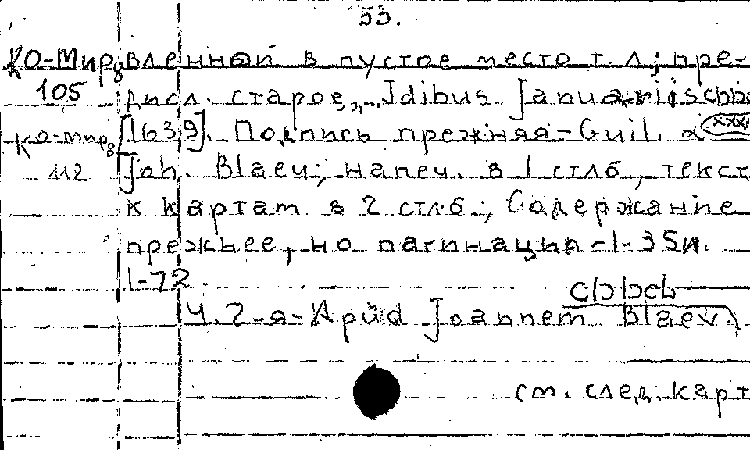 53.
КО-Мир8 вленной в пустое место т. л; пре-
105 дисл. старое, „Idibus Januariis
КО-мир8 [1639]. Подпись прежняя - Guil. &
112 Joh. Blaeu; напеч. в 1 стлб, текст
к картам в 2 стлб.; Содержание
прежнее, но пагинация - 1-35 и.
1-72.
Ч. 2-я - Apud Joannem Blaev.
см. след. карт